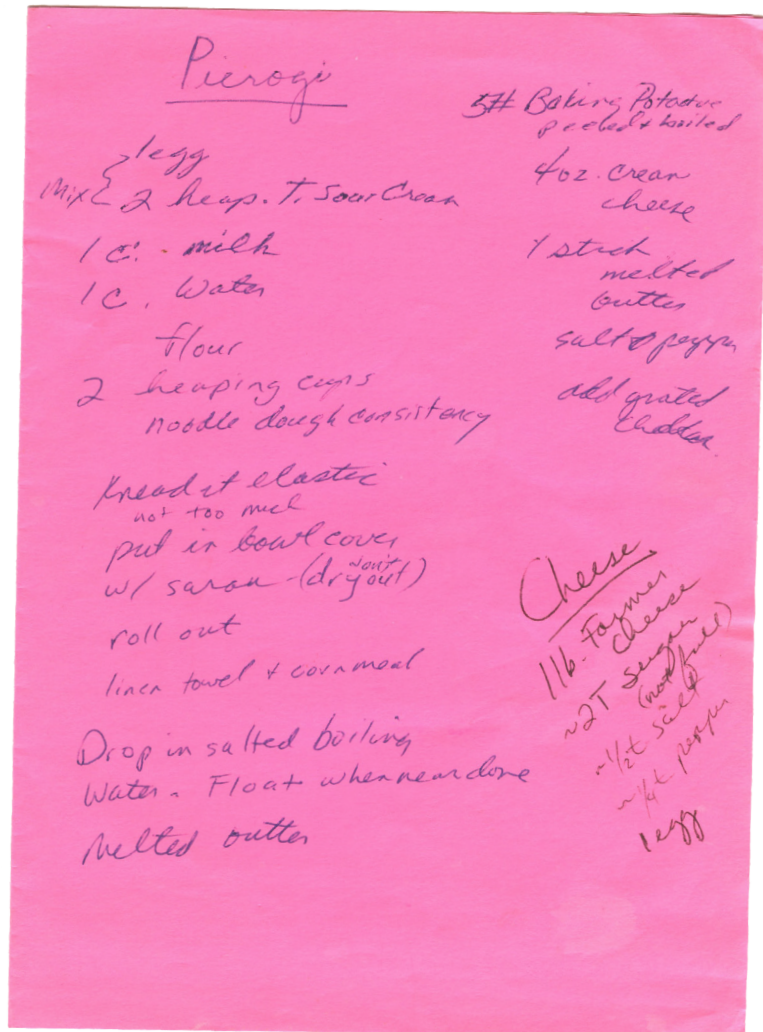 Pierogi
1 egg
Mix { 2 heap. T. Sour Cream
1 c. milk
1 c. Water
flour
2 heaping cups
noodle dough consistency
Knead it elastic
not too much
put in bowl cover
w/ saran - (won't dry out)
roll out
linen towel + cornmeal
Drop in salted boiling
Water - Float when near done
Melted butter
5# Baking Potatoe
peeled + boiled
4 oz. cream
cheese
1 stick
melted
butter
salt & pepper
add grated
cheddar
Cheese
1 lb. Farmer
Cheese
~2T sugar
(not full)
~1/2t salt
~1/4t pepper
1 egg